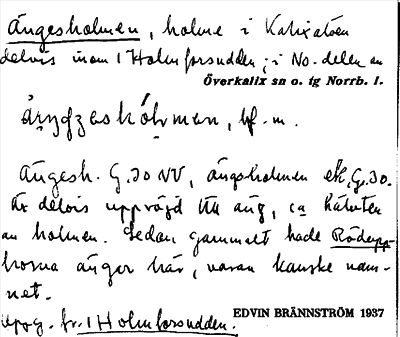 Ängesholmen, holme i Kalixälven
delvis inom 1 Holmforsudden; i No. delen av
Överkalix sn o. tg Norrb. l.
bf. m.
Ängesh. G.30 NV, ängsholmen ek, G.30.
Är delvis uppröjd till äng, ca hälvten
av holmen. Sedan gammalt hade Rödupp-
borna änger här, varav kanske nam-
net.
Uppg. fr. 1 Holmforsudden.
EDVIN BRÄNNSTRÖM 1937